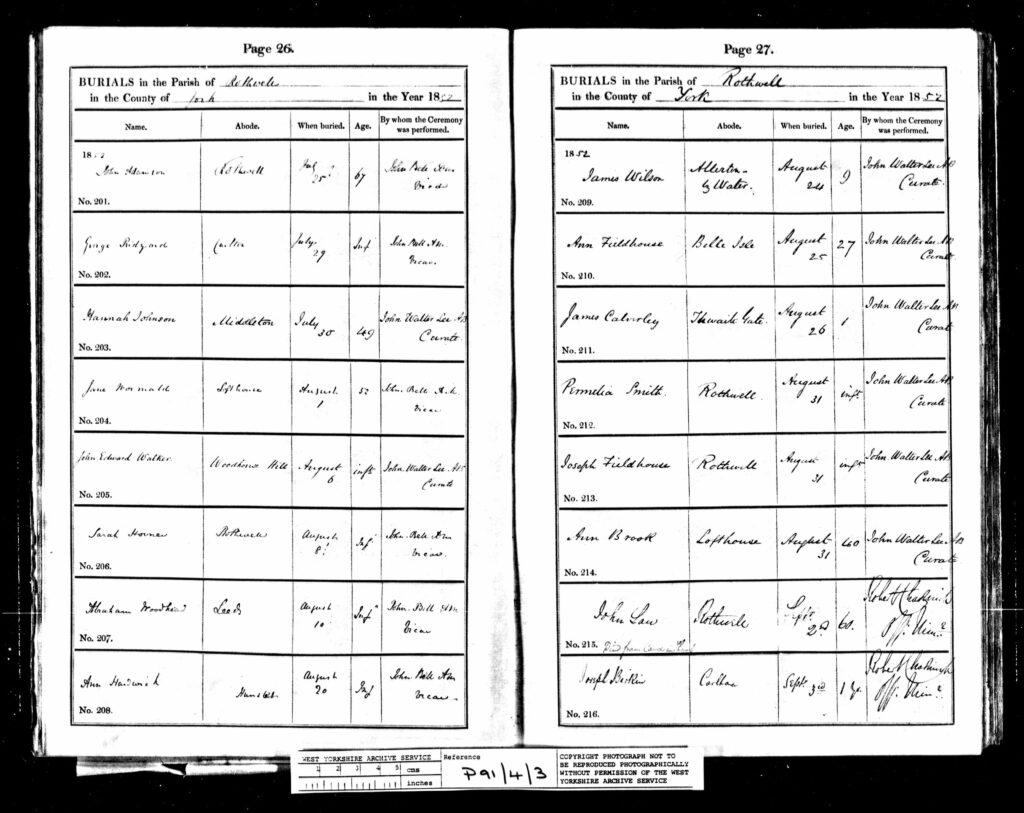 Page 26.
BURIALS in the Parish of Rothwell
in the County of York in the Year 1852
Name. Abode. When buried. Age. By whom the Ceremony was performed.
1852
John Adamson Rothwell July 25 67 John Bell
Vicar
No. 201.
George Carlton July 29 Inf John Bell
Vicar
No. 202.
Hannah Johnson Middleton July 30 49 John Walter Lee AB
Curate
No. 203.
Jane Wormald Lofthouse August 1 52 John Bell
Vicar
No. 204.
John Edward Walker Woodhouse Hill August 6 inft John Walter Lee AB
Curate
No. 205.
Sarah Rothwell August 8 Inf John Bell
Vicar
No. 206.
Abraham Woodhead Leeds August 10 Inf John Bell
Vicar
No. 207.
Ann Hardwick Hunslet August 20 Inf John Bell
Vicar
No. 208.
Page 27.
BURIALS in the Parish of Rothwell
in the County of York in the Year 1852
Name. Abode. When buried. Age. By whom the Ceremony was performed.
1852
James Wilson Allerton by Water. August 24 9 John Walter Lee AB
Curate
No. 209.
Ann Fieldhouse Belle Isle August 25 27 John Walter Lee AB
Curate
No. 210.
James Calverley Thwaite Gate. August 26 1 John Walter Lee AB
Curate
No. 211.
Permelia Smith. Rothwell. August 31 inft John Walter Lee AB
Curate
No. 212.
Joseph Fieldhouse Rothwell August 31 inft John Walter Lee AB
Curate
No. 213.
Ann Brook Lofthouse August 31 40 John Walter Lee AB
Curate
No. 214.
John Law Rothwell Sept. 2nd 60. Robert
Off. Min.
No. 215.
Joseph Birkin Carlton Sept. 3rd 1 Robert
Off. Min.
No. 216.
WEST YORKSHIRE ARCHIVE SERVICE
1 2 3 4 5 cms
inches
Reference
P91/4/3
COPYRIGHT PHOTOGRAPH NOT TO
BE REPRODUCED PHOTOGRAPHICALLY
WITHOUT PERMISSION OF THE WEST
YORKSHIRE ARCHIVE SERVICE